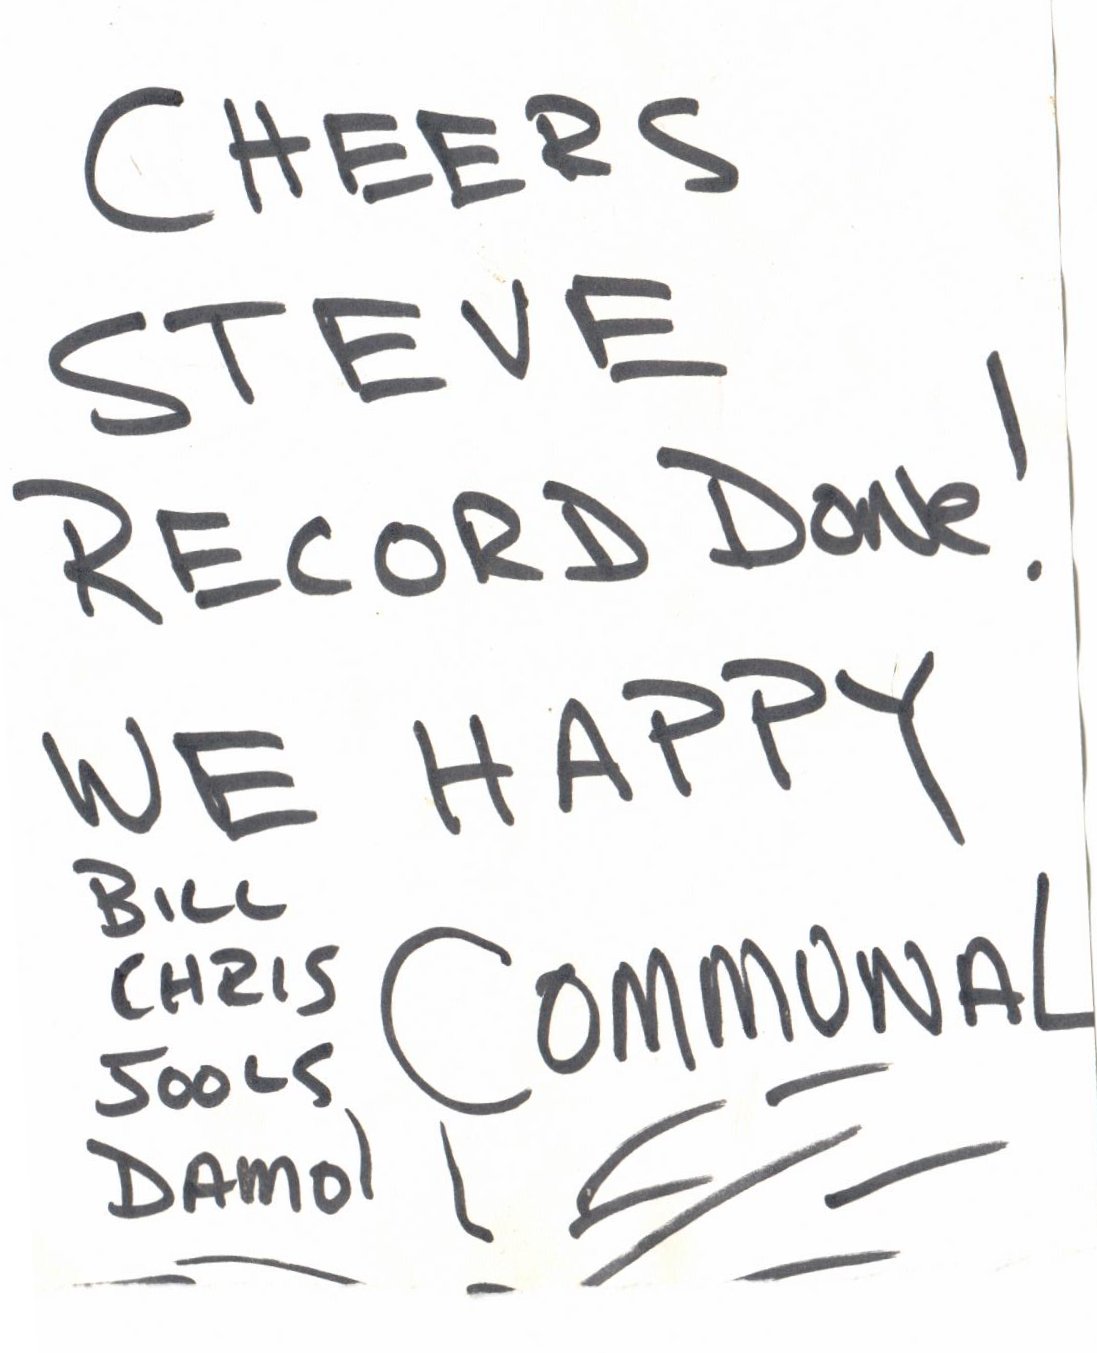 CHEERS
STEVE
RECORD DONE!
WE HAPPY
BILL
CHRIS
JOOLS
DAMO
COMMUNAL